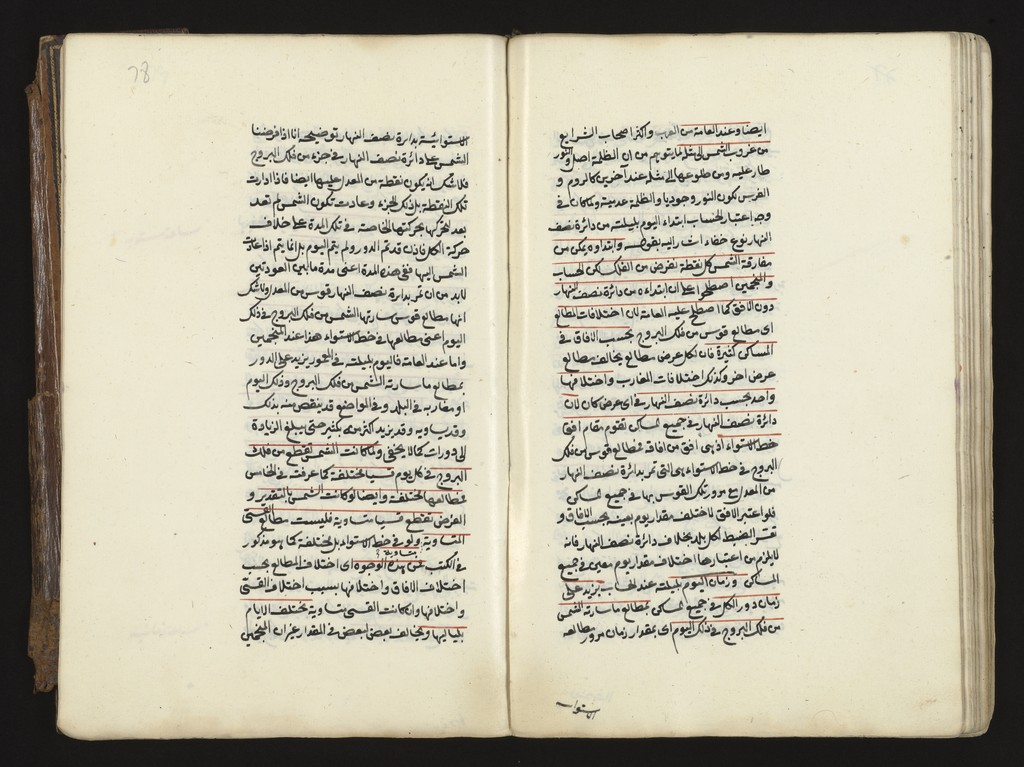 ايضا وعند العامة من العرب واكثر اصحاب الشرايع
من غروب الشمس الى مثله لما يتوهم من ان الظلمة اصل والنور
طار عليه ومن طلوعها الى مثله عند آخرين كالروم و
الفرس لكون النور وجوديا والظلمة عدمية ولما كان في
وجه اعتبار الحساب ابتداء اليوم بليلته من دائرة نصف
النهار نوع خفاء اشار اليه بقوله وابتداوه يمكن من
مفارقة الشمس كل نقطة تفرض من الفلك لكن الحساب
والمنجمين اصطلحوا على ان ابتداءه من دائرة نصف النهار
دون الافق كما اصطلح عليه العامة لان اختلافات المطالع
اى مطالع قوس من فلك البروج بحسب الافاق في
المساكن كثيرة فان لكل عرض مطالع يخالف مطالع
عرض اخر وكذلك اختلافات المغارب واختلافها
واحد بحسب دائرة نصف النهار في اى عرض كان لان
دائرة نصف النهار في جميع المساكن تقوم مقام افق
خط الاستواء اذ هى افق من افاقه فمطالع قوس من فلك
البروج في خط الاستواء هى التى تمر بدائرة نصف النهار
من المعدل مع مرور تلك القوس بها في جميع المساكن
فلو اعتبر الافق لاختلف مقدار يوم بعينه بحسب الافاق و
تعسر الضبط لكل بلد بخلاف دائرة نصف النهار فانه
لا يلزم من اعتبارها اختلاف مقدار يوم معين في جميع
المساكن وزمان اليوم بليلته عند الحساب يزيد على
زمان دور الكل في جميع المساكن بمطالع ما سارته الشمس
من فلك البروج في ذلك اليوم اى بمقدار زمان مرور مطالعه
الاستواء
78
الاستوائية بدائرة نصف النهار توضيحه انا اذا فرضنا
الشمس على دائرة نصف النهار في جزء من فلك البروج
فلا شك انه يكون نقطة من المعدل عليها ايضا فاذا دارت
تلك النقطة بل ذلك الجزء وعادت تكون الشمس لم تعد
بعد لتحركها بحركتها الخاصة في تلك المدة على خلاف
حركة الكل فاذن قد تم الدور ولم يتم اليوم بل انما يتم اذا عادت
الشمس اليها ففي هذه المدة اعنى مدة ما بين العودتين
لابد من ان تمر بدائرة نصف النهار قوس من المعدل ولا شك
انها مطالع قوس سارتها الشمس من فلك البروج في ذلك
اليوم اعنى مطالعها في خط الاستواء هذا عند المنجمين
واما عند العامة فاليوم بليلته في المعمور يزيد على الدور
بمطالع ما سارته الشمس من فلك البروج في ذلك اليوم
او مغاربه في البلد وفي المواضع قد ينقص منه بذلك
وقد يساويه وقد يزيد اكثر منه بكثير حتى يبلغ الزيادة
الى دورات كما لا يخفى ولما كانت الشمس تقطع من فلك
البروج في كل يوم قسيا مختلفة كما عرفت في الخامس
فمطالعها مختلفة وايضا لو كانت الشمس بالتقدير و
الفرض تقطع قسيا متساوية فليست مطالع القسى
المتساوية ولو في خط الاستواء متساوية بل مختلفة كما هو مذكور
في الكتب فمن هذه الوجوه اى اختلاف المطالع بحسب
اختلاف الافاق واختلافها بسبب اختلاف القسى
واختلافها وان كانت القسى متساوية تختلف الايام
بلياليها ويخالف بعض لبعض في المقدار غير ان المنجمين